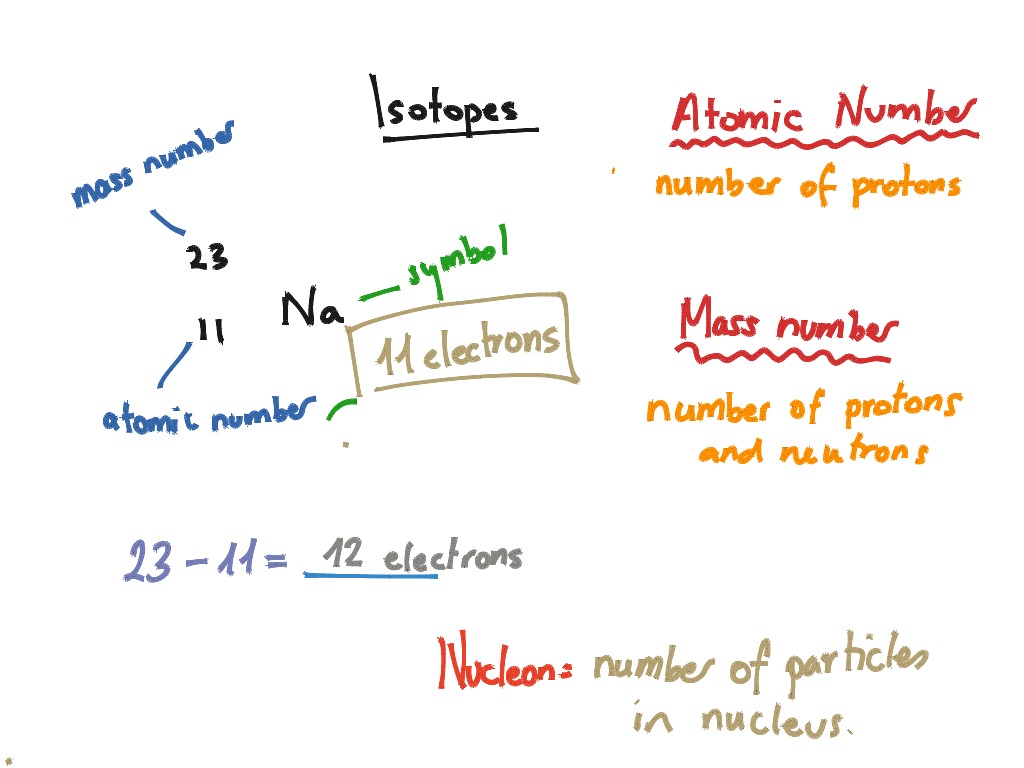 Isotopes
Atomic Number
number of protons
mass number
23
11
Na
symbol
11 electrons
atomic number
Mass number
number of protons
and neutrons
23 - 11 = 12 electrons
Nucleon = number of particles
in nucleus.